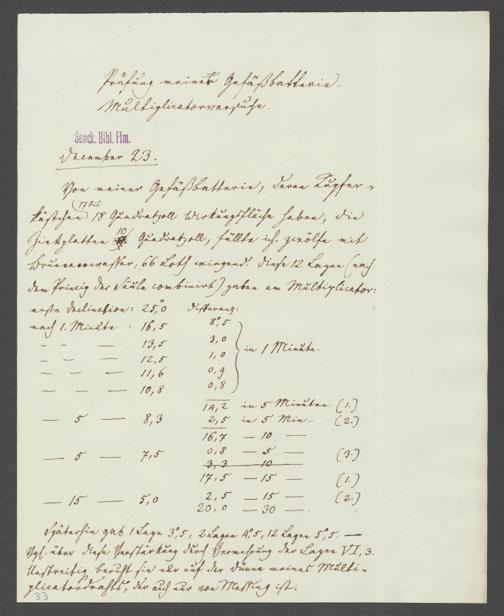 Prüfung meiner Gefäßbatterie.
Multiplicatorversuche.
Senck. Bibl. Ffm.
December 23.
Von meiner Gefäßbatterie, deren Kupfer-
kästchen 17 bis 18 Quadratzoll Wirkungsfläche haben, die
Zinkplatten 10 Quadratzoll, füllte ich zwölfe mit
Brunnenwasser, 66 Loth wiegend. Diese 12 Lagen (nach
dem Princip der Säule combinirt) gaben am Multiplicator:
erste Declination: 25,0 Differenz:
nach 1. Minute : 16,5 8,5
— — — 13,5 3,0
— — — 12,5 1,0 in 1 Minute.
— — — 11,6 0,9
— — — 10,8 0,8
14,2 in 5 Minuten (1.)
— 5 — 8,3 2,5 in 5 Min.. (2.)
16,7 — 10 —
— 5 — 7,5 0,8 — 5 — (3.)
3,3 — 10 —
17,5 — 15 — (1.)
— 15 — 5,0 2,5 — 15 — (2.)
20,0 — 30 —
Späterhin gab 1 Lage 3°,5, 2 Lagen 4°,5, 12 Lagen 5°,5. —
Vgl. über diese Verstärkung durch Vermehrung der Lagen VI, 3.
Unstreitig beruht sie nur auf der Dünne meines Multi-
plicatordrahts, der auch nur von Messing ist.
33